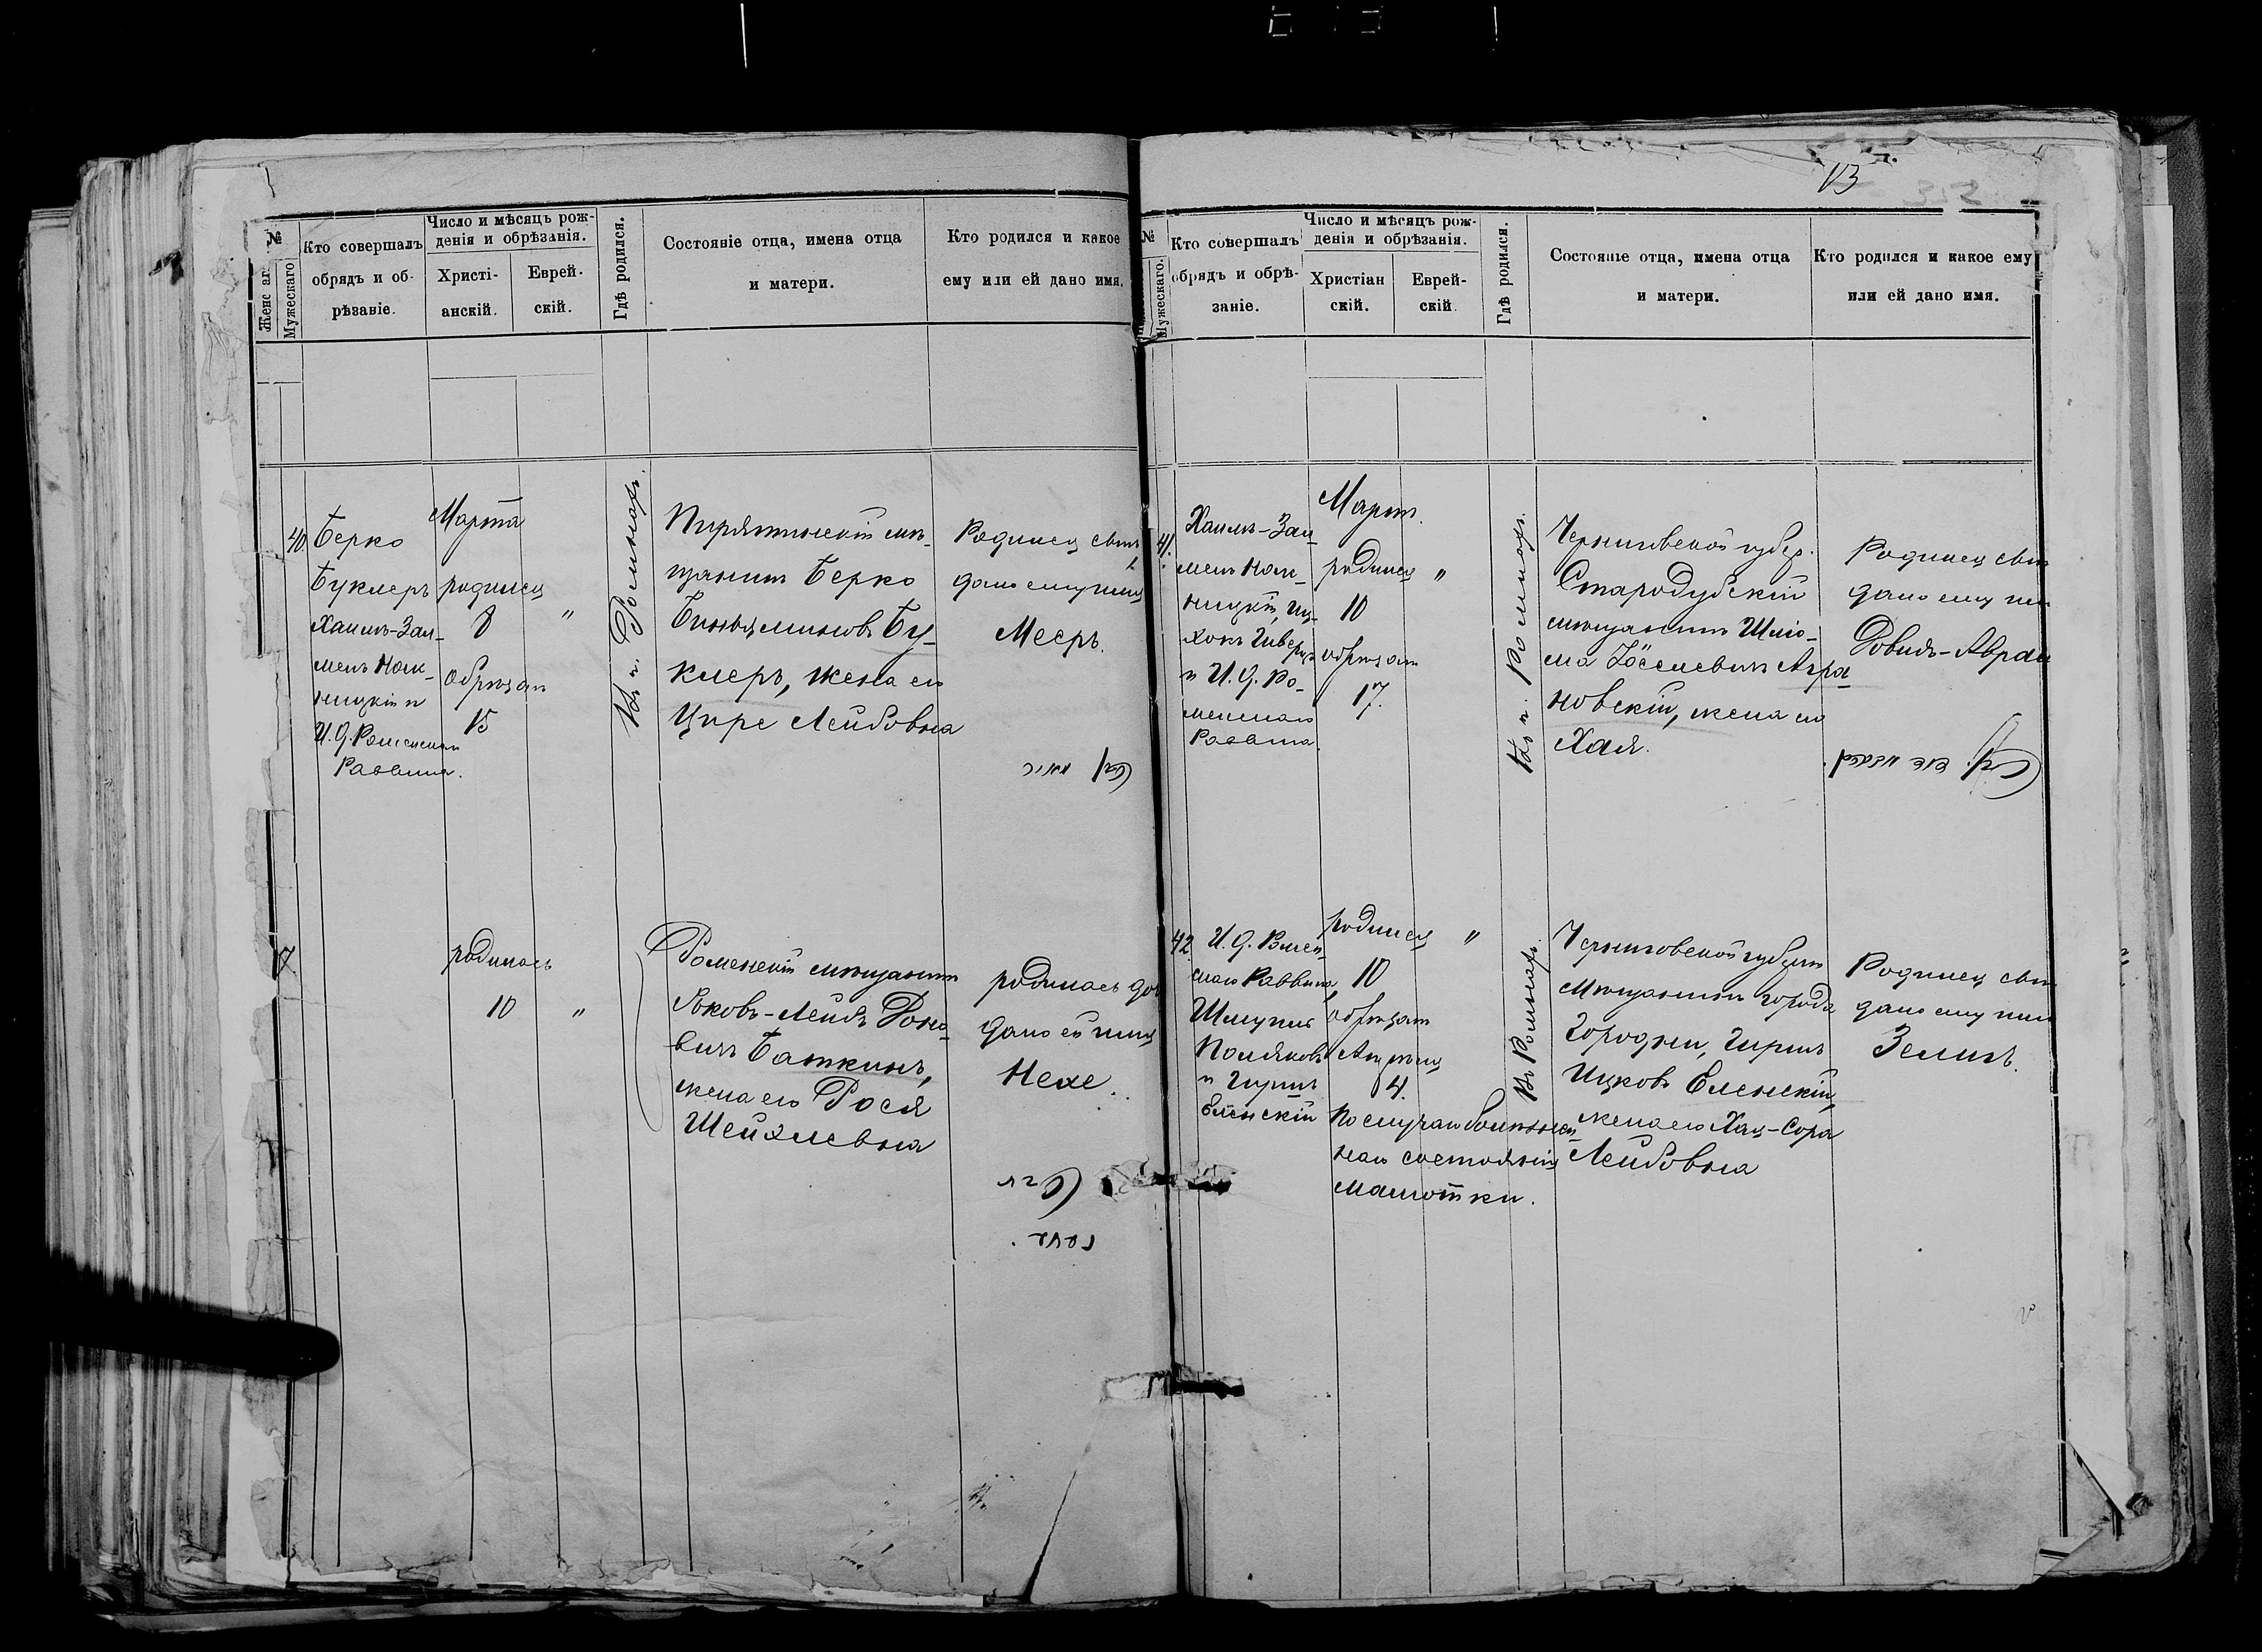 13
№
Женс аг.
Мужескаго
Кто совершалъ
обрядъ и об-
рѣзаніе.
Число и мѣсяцъ рож-
денія и обрѣзанія.
Христі-
анскій.
Еврей-
скій.
Гдѣ родился.
Состояніе отца, имена отца
и матери.
Кто родился и какое
ему или ей дано имя.
40.
Берко
Буклеръ
Хаимъ-Зал-
менъ
и
И. Д. Роменскаго
Раввина.
Марта
родился
8
обрѣзанъ
15
"
въ г. Ромнахъ.
Пирятинскій мѣ-
щанинъ Берко
Биньяминовъ Бу-
клеръ, жена его
Ципе Лейбовна
Родился сынъ
дано ему имя
Мееръ.
родилась
10
"
Роменскій мѣщанинъ
Яковъ-Лейбъ
Баткинъ,
жена его Рося
Шейхлевна
родилась доч
дано ей имя
Нехе.
№
Мужескаго.
Кто совершалъ
обрядъ и обрѣ-
заніе.
Число и мѣсяцъ рож-
денія и обрѣзанія.
Христіан
скій.
Еврей-
скій.
Гдѣ родился.
Состояніе отца, имена отца
и матери.
Кто родился и какое ему
или ей дано имя.
41.
Хаимъ-Зал-
менъ
и И. Д. Ро-
менскаго
Раввина.
Март.
родился
10
обрѣзанъ
17.
"
въ г. Ромнахъ.
Черниговской губер.
Стародубскій
мѣщанинъ Шлио-
ма Іосселевичъ Агра-
новскій, жена его
Хая.
Родился сын
дано ему им
Довидъ-Аврам
42
И. Д. Ромен
скаго Раввина,
Шмуило
Поляковъ
и Гиршъ
Еленскій
родился
10
обрѣзанъ
Апрѣля
4.
По случаю болѣзнен
наго состоянія
малютки.
"
въ Ромнахъ.
Черниговской губерніи
мѣщанинъ города
Городни, Гиршъ
Ицковъ Еленскій,
жена его Хая-Сора
Лейбовна
Родился сын
дано ему имя
Зелигъ.